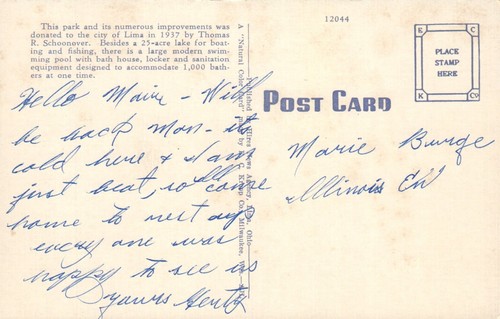 This park and its numerous improvements was
donated to the city of Lima in 1937 by Thomas
R. Schoonover. Besides a 25-acre lake for boat-
ing and fishing, there is a large modern swim-
ming pool with bath house, locker and sanitation
equipment designed to accommodate 1,000 bath-
ers at one time.
Hello Marie - Will
be back Mon - it
cold here & I am
just beat, so come
home to rest
every one was
happy to see us
yours
A "Natural Color Card" Made by E. C. Kropp Co., Milwaukee, Wis.
Published by News Agency, Lima, Ohio
12044
POST CARD
E C
PLACE
STAMP
HERE
K Co
Marie Burge
Illinois